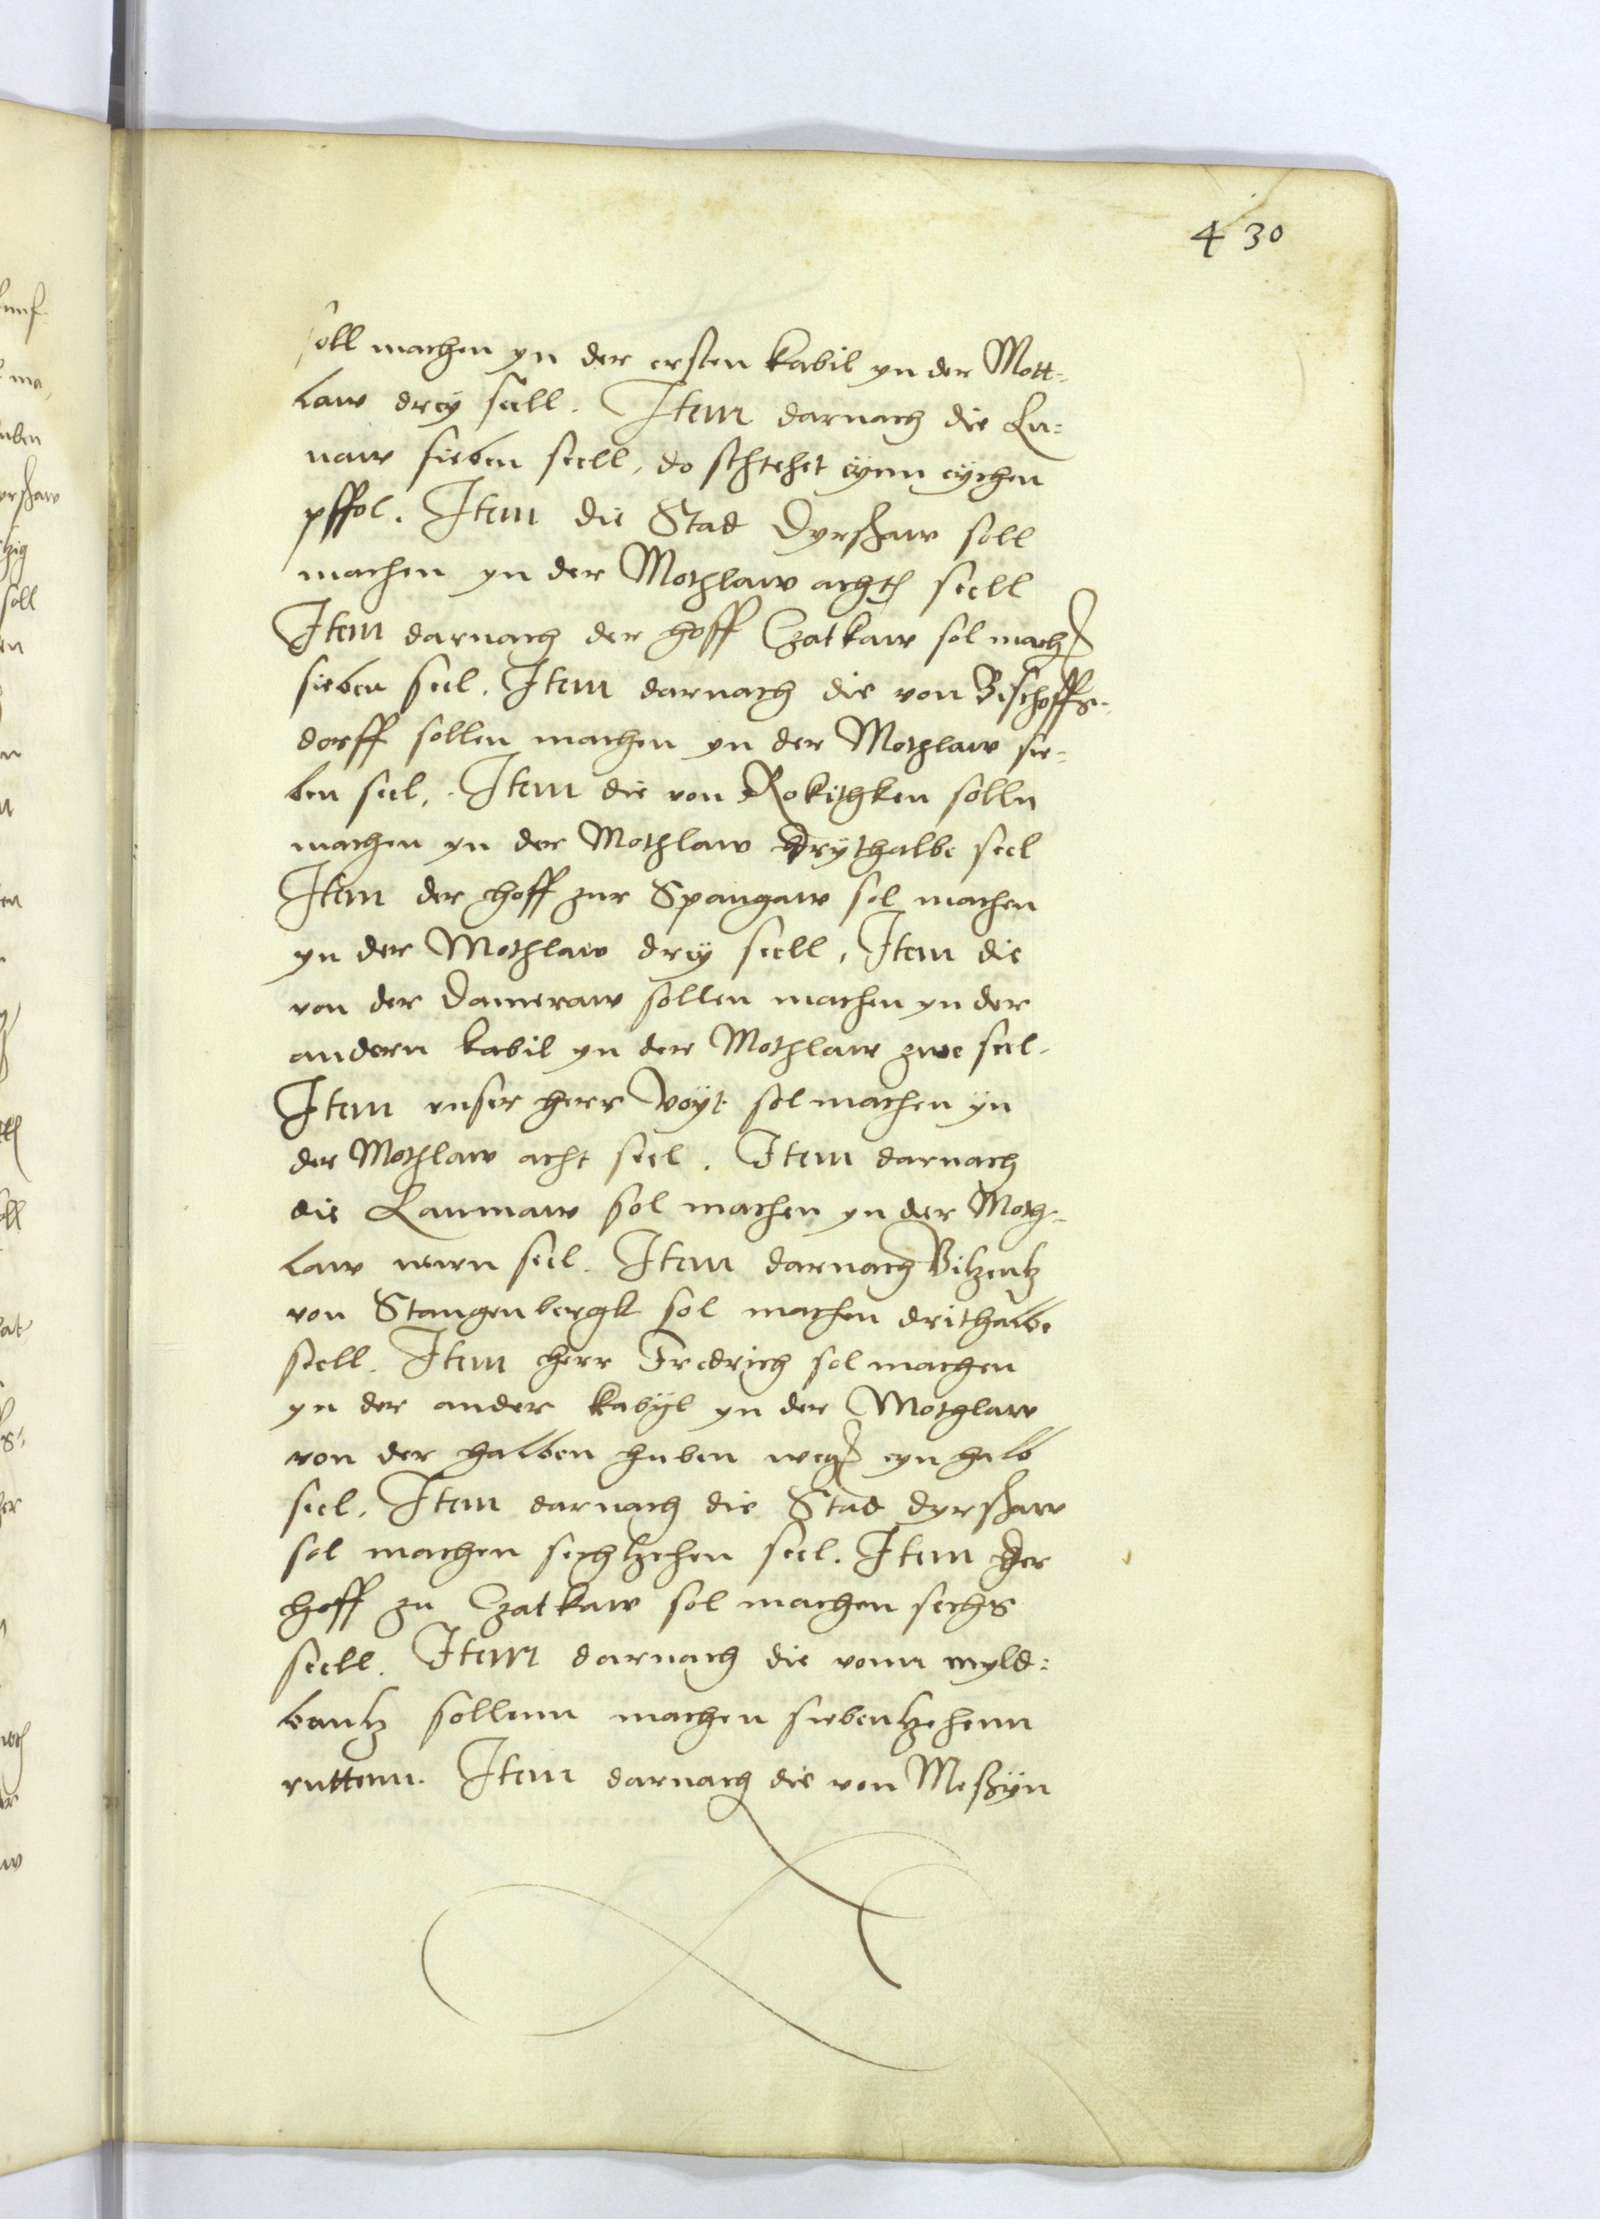 430
soll machen yn der ersten kabil yn der Mott-
law drey seell. Item darnach die Lu-
naw sieben seell, do schtehet eynn eychen
pffol. Item die Stad Dyrßaw soll
machen yn der Mothlaw achth seell
Item darnach der hoff Czatkaw sol mach
sieben seel. Item darnach die von Bischoffs-
dorff sollen machen yn der Mothlaw sie-
ben seel. Item die von Rokithken solln
machen yn der Mothlaw drythalbe seel
Item der hoff zur Spangaw sol machen
yn der Mothlaw drey seell, Item die
von der Dameraw sollen machen yn der
andern kabil yn der Mothlaw zwe seel.
Item unser herr Voyt sol machen yn
der Mothlaw acht seel. Item darnach
die Launaw sol machen yn der Moth-
law newn seel. Item darnach
von Stangenbergk sol machen drithalbe
seell. Item herr Fredrich sol machen
yn der ander kabyl yn der Mothlaw
von der halben huben weg eyn halb
seel. Item darnach die Stad Dyrßaw
sol machen sechtzehen seel. Item der
hoff zu Czatkaw sol machen sechs
seell. Item darnach die vonn myld-
bantz sollenn machen siebentzehenn
ruttenn. Item darnach die von Meßyn